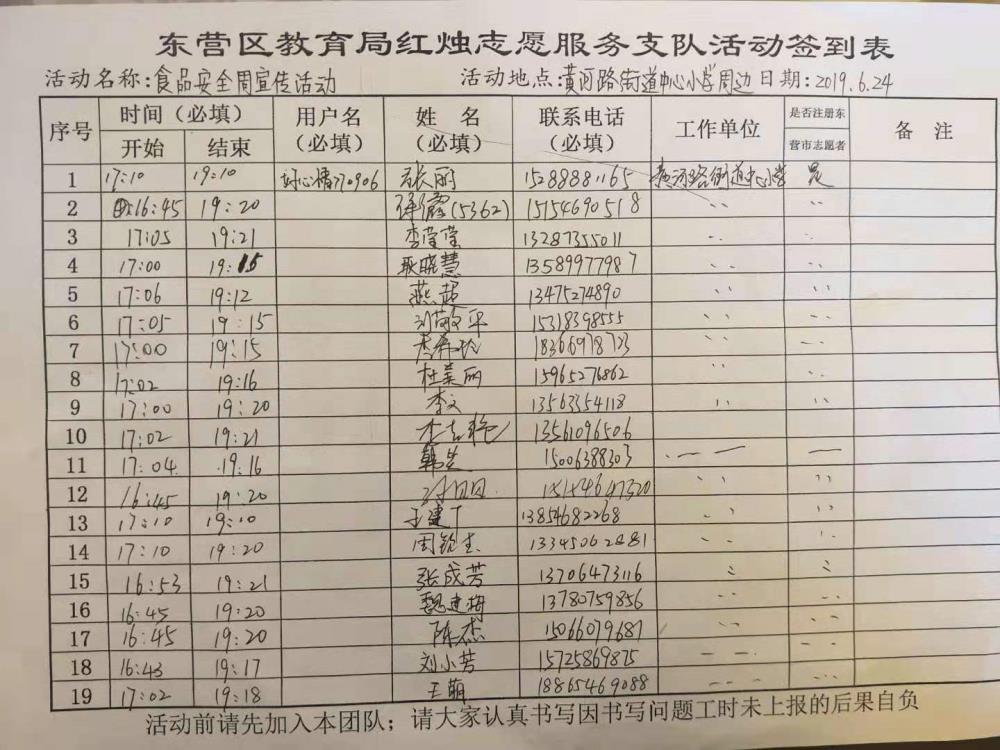 东营区教育局红烛志愿服务支队活动签到表
活动名称:食品安全周宣传活动 活动地点:黄河路街道中心小学周边 日期:2019.6.24
序号 时间（必填） 用户名（必填） 姓 名（必填） 联系电话（必填） 工作单位 是否注册东营市志愿者 备 注
开始 结束
1 17:10 19:10 张丽 15288881165 黄河路街道中心小学 是
2 16:45 19:20 (5362) 15154690518 〃 〃
3 17:05 19:21 李莹莹 13287355011 〃 〃
4 17:00 19:15 耿晓慧 13589977987 〃 〃
5 17:06 19:12 燕超 13475274890 〃 〃
6 17:05 19:15 刘敬平 15318398555 〃 〃
7 17:00 19:15 18366978723 〃 〃
8 17:02 19:16 杜美丽 15965276862 〃 〃
9 17:00 19:20 李文 13563354118 〃 〃
10 17:02 19:21 13561096506
11 17:04 19:16 15006388303
12 16:45 19:20 〃 〃
13 17:10 19:10 13854682268 〃 〃
14 17:10 19:20 〃 〃
15 16:53 19:21 张成芳 13706473116 〃 〃
16 16:45 19:20 魏建梅 13780759856 〃 〃
17 16:45 19:20 陈杰 15066079687 〃 〃
18 16:43 19:17 刘小芳 15725869875
19 17:02 19:18 王萌 18865469088 〃 〃
活动前请先加入本团队；请大家认真书写因书写问题工时未上报的后果自负